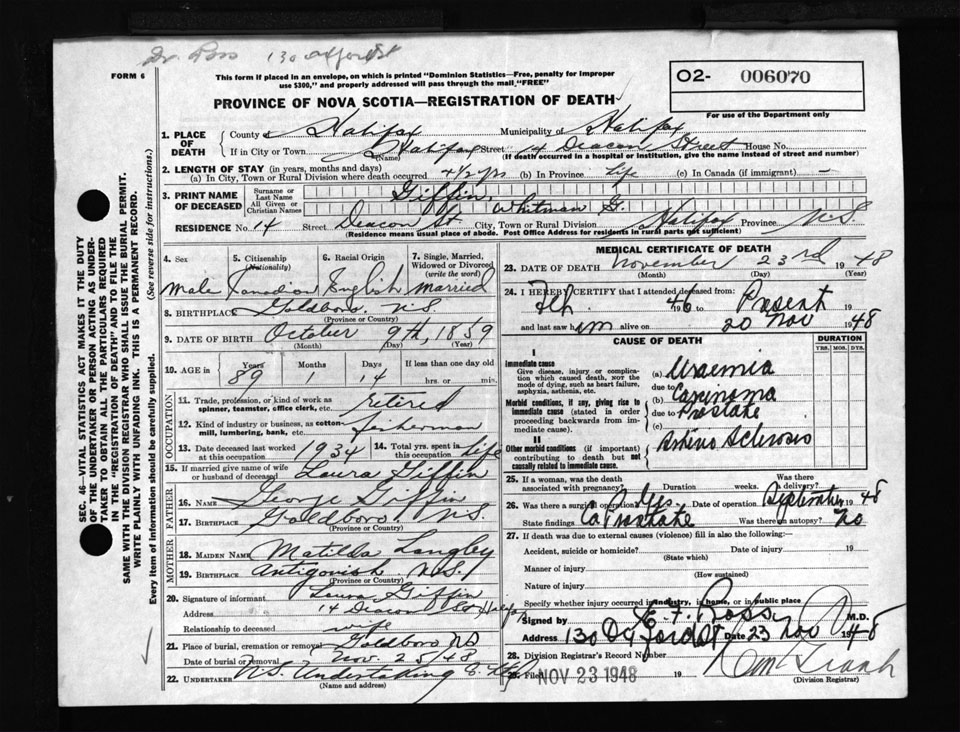 Dr. Ross 130 Oxford St
FORM 6
This form if placed in an envelope, on which is printed "Dominion Statistics—Free, penalty for improper
use $300," and properly addressed will pass through the mail "FREE"
O2- 006070
PROVINCE OF NOVA SCOTIA—REGISTRATION OF DEATH
For use of the Department only
1. PLACE OF DEATH
County Halifax Municipality of Halifax
If in City or Town Halifax Street 14 Deacon Street House No.
(Name) (If death occurred in a hospital or institution, give the name instead of street and number)
2. LENGTH OF STAY (in years, months and days)
(a) In City, Town or Rural Division where death occurred 4 1/2 yrs (b) In Province life (c) In Canada (if immigrant) —
3. PRINT NAME OF DECEASED
Surname or Last Name Giffin,
All Given or Christian Names Whitman G.
RESIDENCE No. 14 Street Deacon St City, Town or Rural Division Halifax Province N.S.
(Residence means usual place of abode. Post Office Address for residents in rural parts not sufficient)
4. Sex 5. Citizenship (Nationality) 6. Racial Origin 7. Single, Married, Widowed or Divorced (write the word)
Male Canadian English Married
8. BIRTHPLACE Goldboro, N.S.
(Province or Country)
9. DATE OF BIRTH October 9th, 1859
(Month) (Day) (Year)
10. AGE in Years Months Days If less than one day old
89 14 hrs. or min.
OCCUPATION
11. Trade, profession, or kind of work as spinner, teamster, office clerk, etc. retired
12. Kind of industry or business, as cotton mill, lumbering, bank, etc. fisherman
13. Date deceased last worked at this occupation 1934 14. Total yrs. spent in this occupation life
15. If married give name of wife or husband of deceased Laura Giffin
FATHER
16. NAME George Giffin
17. BIRTHPLACE Goldboro, N.S.
(Province or Country)
MOTHER
18. MAIDEN NAME Matilda Langley
19. BIRTHPLACE Antigonish N.S.
(Province or Country)
20. Signature of informant Laura Giffin
Address 14 Deacon St Halifax
Relationship to deceased wife
21. Place of burial, cremation or removal Goldboro NS
Date of burial or removal Nov. 25/48
22. UNDERTAKER N.S. Undertaking
(Name and address)
MEDICAL CERTIFICATE OF DEATH
23. DATE OF DEATH November 23rd 1948
(Month) (Day) (Year)
24. I HEREBY CERTIFY that I attended deceased from:
Feb. 1946 to Present 19
and last saw him alive on 20 Nov 1948
CAUSE OF DEATH DURATION
YRS. MOS. DYS.
I
Immediate cause
Give disease, injury or complication which caused death, not the mode of dying, such as heart failure, asphyxia, asthenia, etc.
(a) Uraemia
due to
Morbid conditions, if any, giving rise to immediate cause (stated in order proceeding backwards from immediate cause).
(b) Carcinoma
due to Prostate
(c)
II
Other morbid conditions (if important) contributing to death but not causally related to immediate cause.
Arterio Sclerosis
25. If a woman, was the death associated with pregnancy? Duration weeks. Was there a delivery?
26. Was there a surgical operation? Yes. Date of operation September 1948
State findings Ca Prostate Was there an autopsy? No
27. If death was due to external causes (violence) fill in also the following:
Accident, suicide or homicide? Date of injury 19
(State which)
Manner of injury
(How sustained)
Nature of injury
Specify whether injury occurred in industry, in home, or in public place
Signed by E. F. Ross M.D.
Address 130 Oxford St Date 23 Nov 1948
28. Division Registrar's Record Number
29. Filed NOV 23 1948 19
(Division Registrar)
SEC. 46—VITAL STATISTICS ACT MAKES IT THE DUTY
OF THE UNDERTAKER OR PERSON ACTING AS UNDER-
TAKER TO OBTAIN ALL THE PARTICULARS REQUIRED
IN THE "REGISTRATION OF DEATH" AND TO FILE THE
SAME WITH THE DIVISION REGISTRAR WHO SHALL ISSUE THE BURIAL PERMIT.
WRITE PLAINLY WITH UNFADING INK. THIS IS A PERMANENT RECORD.
Every item of Information should be carefully supplied. (See reverse side for instructions.)